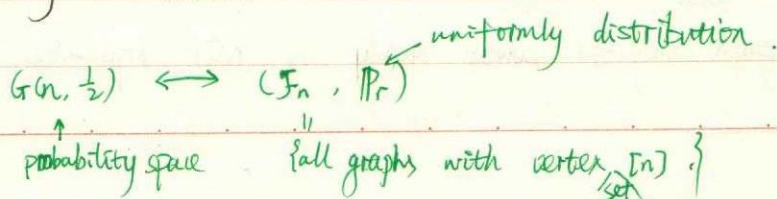 uniformly distribution.
G(n, 1/2) ↔ (𝓕n, ℙr)
probability space {all graphs with vertex set [n].}